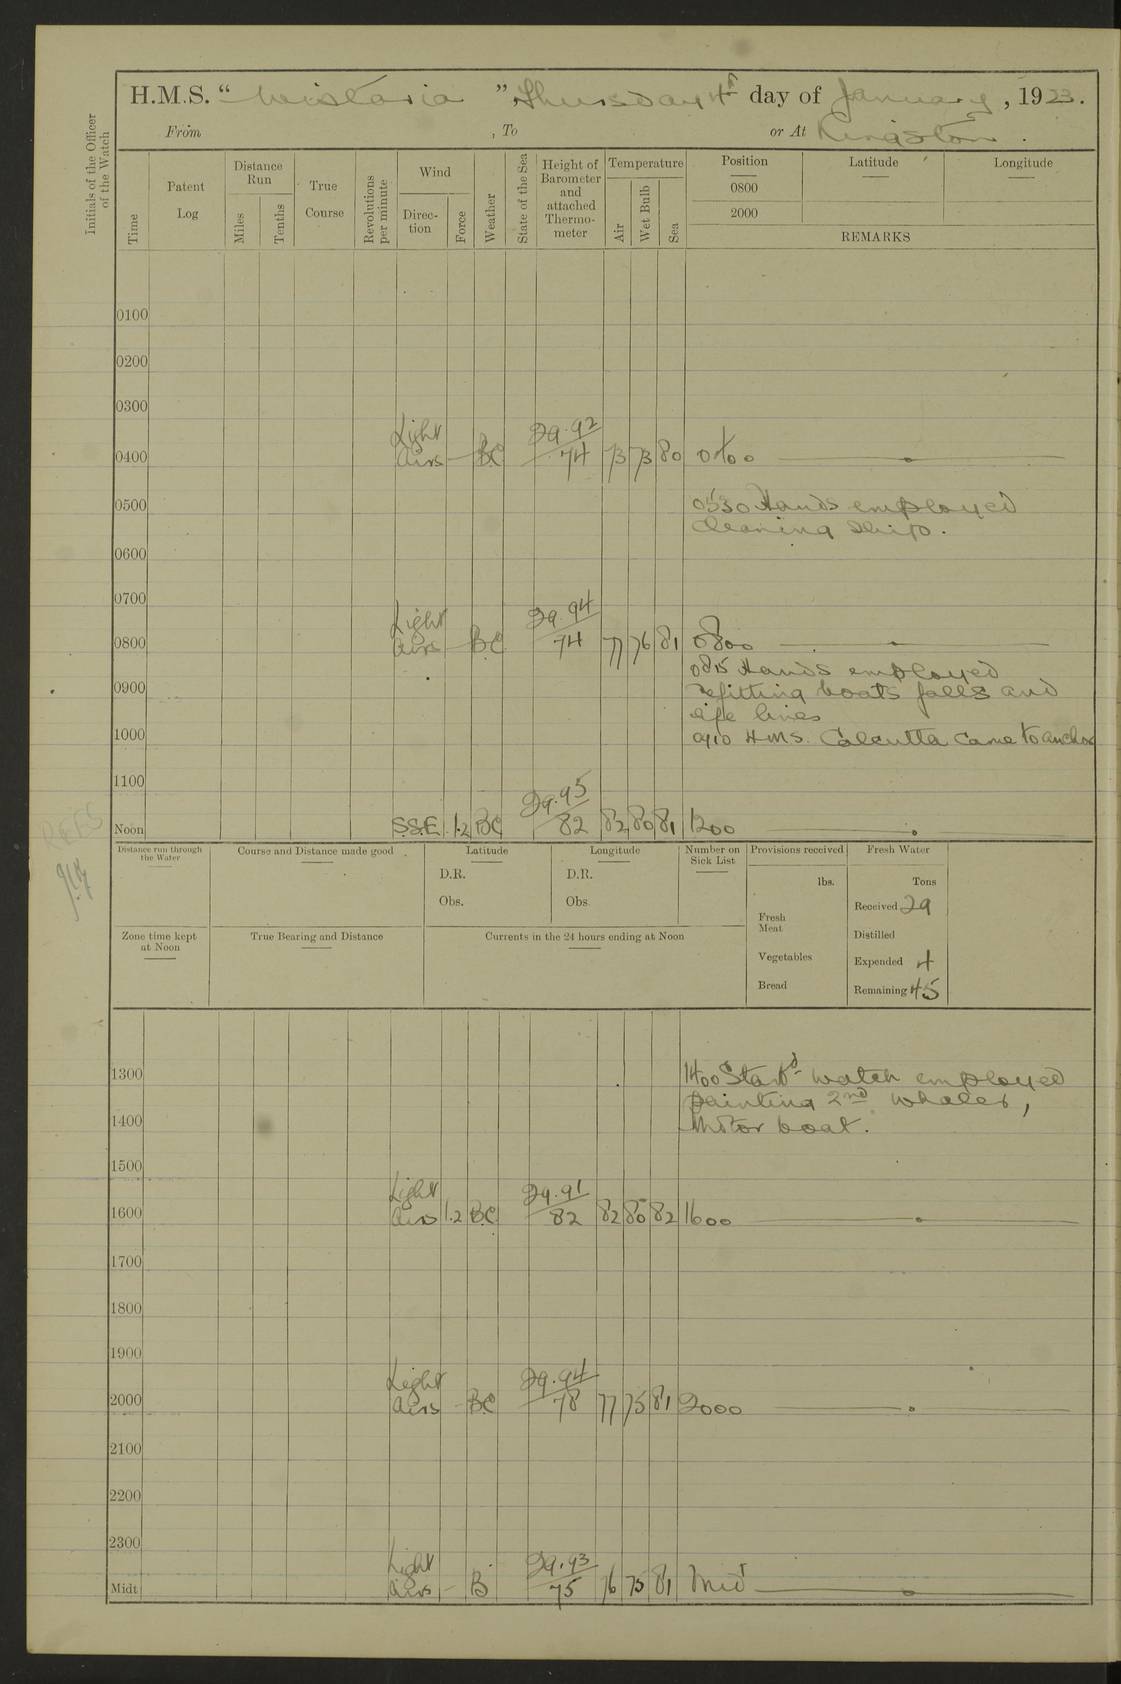 H.M.S. "Wistaria" Thursday 4th day of January, 1923.
From , To or At Kingston.
Initials of the Officer of the Watch
Time
Patent Log
Distance Run
Miles
Tenths
True Course
Revolutions per minute
Wind
Direction
Force
Weather
State of the Sea
Height of Barometer and attached Thermometer
Temperature
Air
Wet Bulb
Sea
Position Latitude Longitude
0800
2000
REMARKS
0100
0200
0300
0400 Light Airs - BC 29.92/74 73 73 80 0400
0500 0530 Hands employed
cleaning ship.
0600
0700
0800 Light Airs - BC 29.94/74 77 76 81 0800
0815 Hands employed
0900 refitting boats falls and
life lines
1000 0910 H.M.S. Calcutta came to anchor
1100
Noon S.S.E. 1.2 BC 29.95/82 82 80 81 1200
Distance run through the Water
Course and Distance made good
Latitude
D.R.
Obs.
Longitude
D.R.
Obs.
Number on Sick List
Provisions received
lbs.
Fresh Meat
Vegetables
Bread
Fresh Water
Tons
Received 29
Distilled
Expended 4
Remaining 45
Zone time kept at Noon
True Bearing and Distance
Currents in the 24 hours ending at Noon
1300 1400 Starbd watch employed
painting 2nd whaler,
1400 Motor boat.
1500
1600 Light Airs 1.2 BC 29.91/82 82 80 82 1600
1700
1800
1900
2000 Light Airs - BC 29.94/78 77 75 81 2000
2100
2200
2300
Midt Light Airs - B 29.93/75 76 75 81 Midt